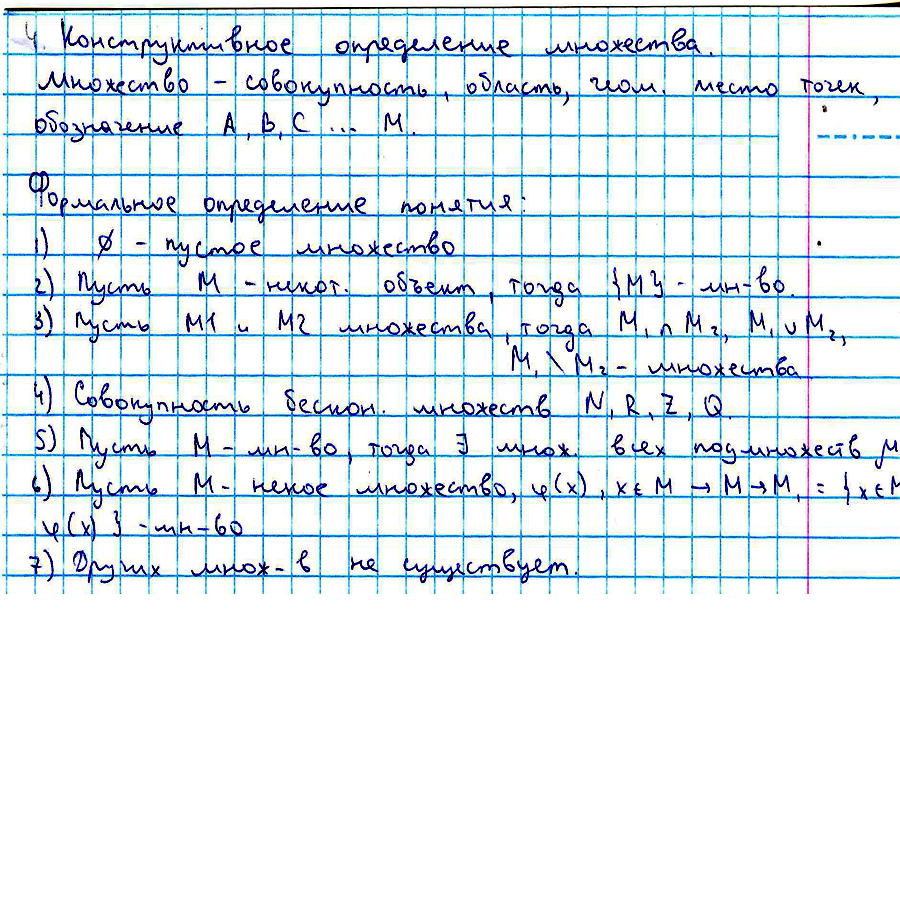 4. Конструктивное определение множества.
Множество - совокупность, область, геом. место точек,
обозначение A, B, C ... M.
Формальное определение понятия:
1) ∅ - пустое множество
2) Пусть M - некот. объект, тогда {M} - мн-во.
3) Пусть M1 и M2 множества, тогда M₁ ∩ M₂, M₁ ∪ M₂,
M₁ \ M₂ - множества
4) Совокупность бескон. множеств N, R, Z, Q.
5) Пусть M - мн-во, тогда ∃ множ. всех подмножеств M
6) Пусть M - некое множество, φ(x), x ∈ M → M → M₁ = {x ∈ M
φ(x)} - мн-во
7) Других множ-в не существует.